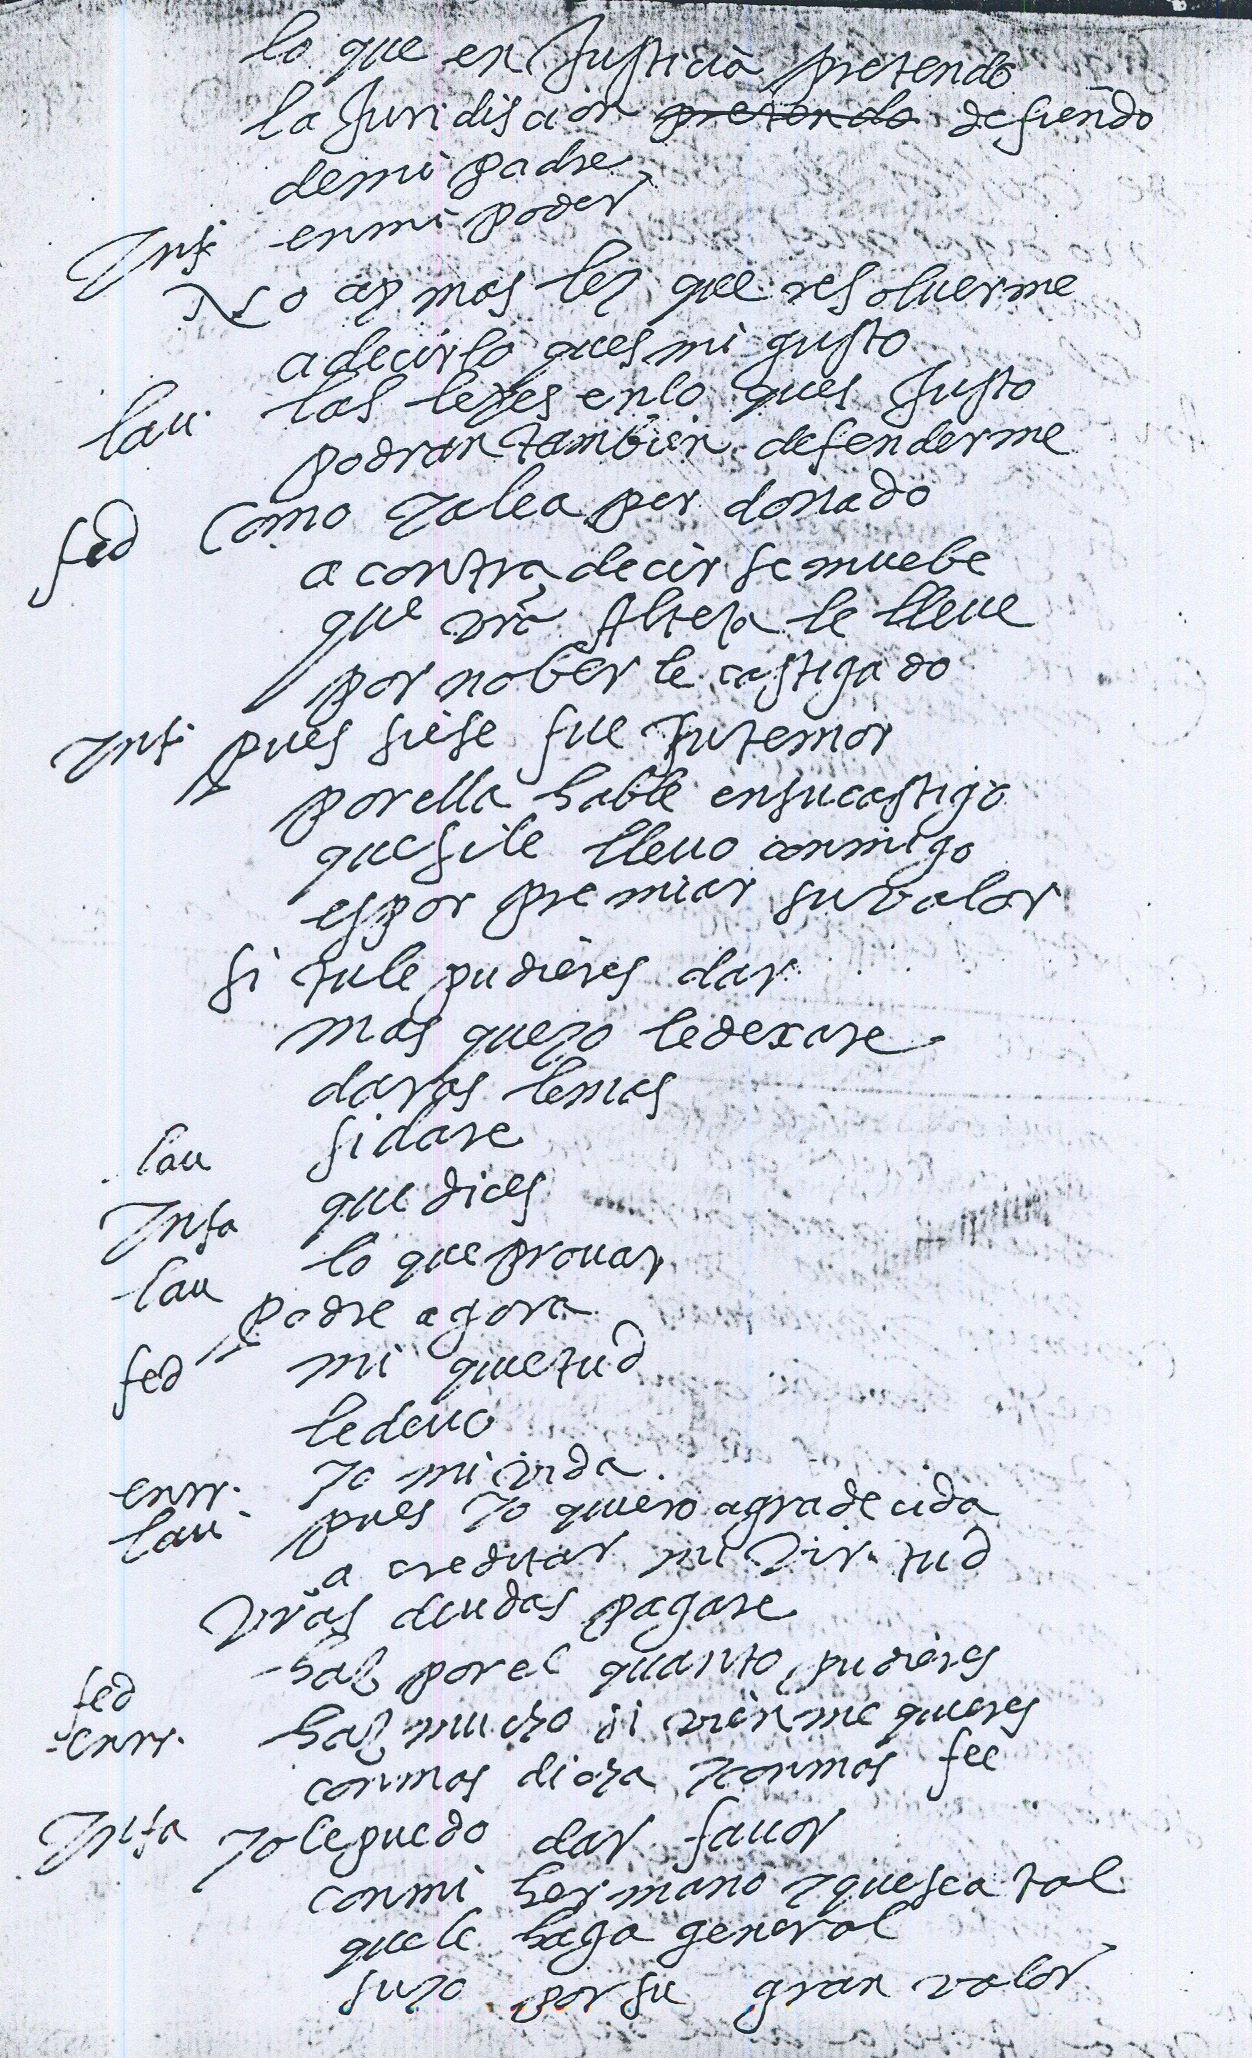 lo que en Justicia pretendo
la Juridiscion pretendo defiendo
demi padre
Inf enmi poder
No ay mas ley que resoluerme
adecirlo ques mi gusto
lau las leyes enlo ques Justo
podran tambien defenderme
fed Como yalea perdonado
a contradecir se muebe
que vrã Alteza le lleue
por no berle castigado
Inf pues siese fue tutemor
porella hable ensucastigo
quesile lleuo conmigo
espor premiar suvalor
si tule pudieres dar
mas queyo ledexare
daras lemas
lau sidare
Infa que dices
lau lo que prouar
podre agora
fed mi quietud
ledeuo
enrr. yo mi vida
lau pues yo quiero agradecida
a creditar mi Virtud
Vrãs deudas pagare
fed haz porel quanto pudieres
enrr. haz mucho si vien me quieres
conmas dicha yconmas fee
Infa yolepuedo dar fauor
conmi hermano yquesea tal
quele haga general
suyo porsu gran valor